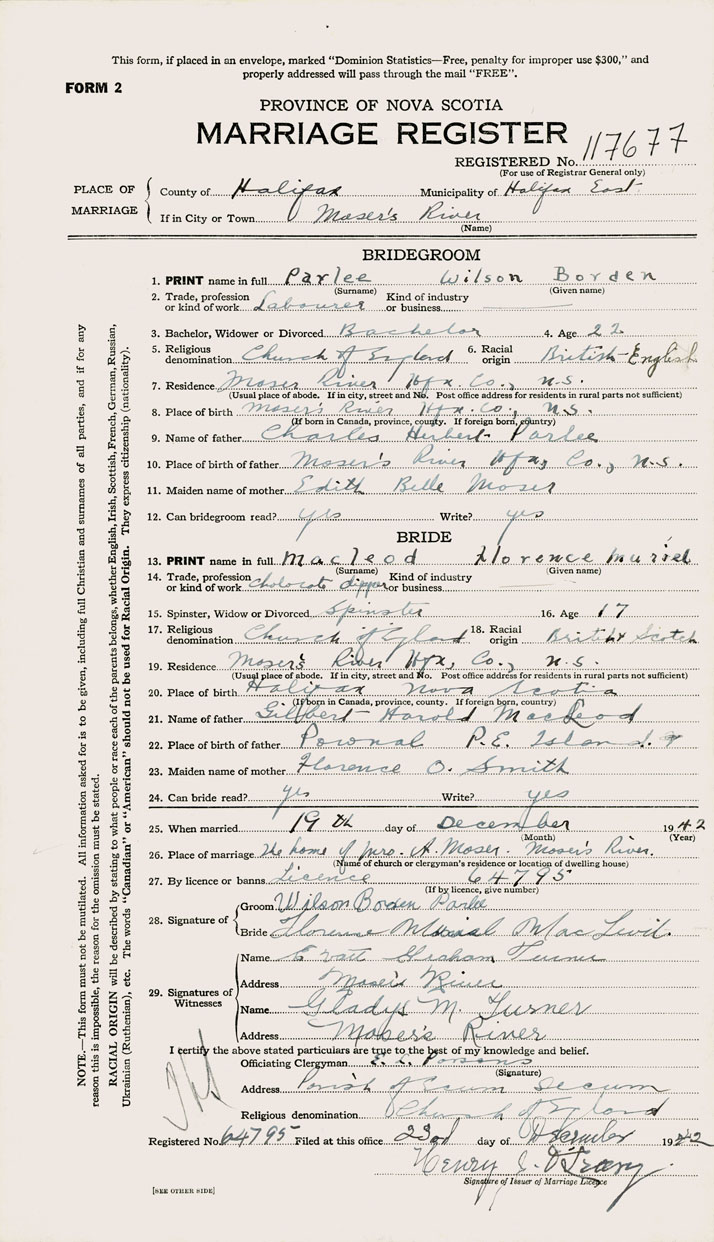 This form, if placed in an envelope, marked "Dominion Statistics—Free, penalty for improper use $300," and
properly addressed will pass through the mail "FREE".
FORM 2
PROVINCE OF NOVA SCOTIA
MARRIAGE REGISTER
REGISTERED No. 117677
(For use of Registrar General only)
PLACE OF MARRIAGE
County of Halifax Municipality of Halifax East
If in City or Town Moser's River
(Name)
BRIDEGROOM
1. PRINT name in full Parlee Wilson Borden
(Surname) (Given name)
2. Trade, profession or kind of work Labourer Kind of industry or business
3. Bachelor, Widower or Divorced Bachelor 4. Age 22
5. Religious denomination Church of England 6. Racial origin British-English
7. Residence Moser River Hfx. Co., N.S.
(Usual place of abode. If in city, street and No. Post office address for residents in rural parts not sufficient)
8. Place of birth Moser's River Hfx. Co., N.S.
(If born in Canada, province, county. If foreign born, country)
9. Name of father Charles Herbert Parlee
10. Place of birth of father Moser's River Hfx, Co., N.S.
11. Maiden name of mother Edith Belle Moser
12. Can bridegroom read? yes Write? yes
BRIDE
13. PRINT name in full Macleod Florence Muriel
(Surname) (Given name)
14. Trade, profession or kind of work Cholocate dipper Kind of industry or business
15. Spinster, Widow or Divorced Spinster 16. Age 17
17. Religious denomination Church of England 18. Racial origin British Scotch
19. Residence Moser's River Hfx, Co., N.S.
(Usual place of abode. If in city, street and No. Post office address for residents in rural parts not sufficient)
20. Place of birth Halifax Nova Scotia
(If born in Canada, province, county. If foreign born, country)
21. Name of father Gilbert Harold MacLeod
22. Place of birth of father Pownal P.E. Island.
23. Maiden name of mother Florence O. Smith
24. Can bride read? yes Write? yes
25. When married 19th day of December 1942
(Month) (Year)
26. Place of marriage The home of Mrs. A. Moser. Moser's River.
(Name of church or clergyman's residence or location of dwelling house)
27. By licence or banns Licence 64795
(If by licence, give number)
28. Signature of
Groom Wilson Borden Parlee
Bride Florence Muriel MacLeod.
29. Signatures of Witnesses
Name Graham Turner
Address Moser's River
Name Gladys M. Turner
Address Moser's River
I certify the above stated particulars are true to the best of my knowledge and belief.
Officiating Clergyman E. L. Parsons
(Signature)
Address Parish of Ecum Secum
Religious denomination Church of England
Registered No. 64795 Filed at this office 23rd day of December 1942
Henry J.
Signature of Issuer of Marriage Licence
[SEE OTHER SIDE]
NOTE.—This form must not be mutilated. All information asked for is to be given, including full Christian and surnames of all parties, and if for any
reason this is impossible, the reason for the omission must be stated.
RACIAL ORIGIN will be described by stating to what people or race each of the parents belongs, whether English, Irish, Scottish, French, German, Russian,
Ukrainian (Ruthenian), etc. The words "Canadian" or "American" should not be used for Racial Origin. They express citizenship (nationality).